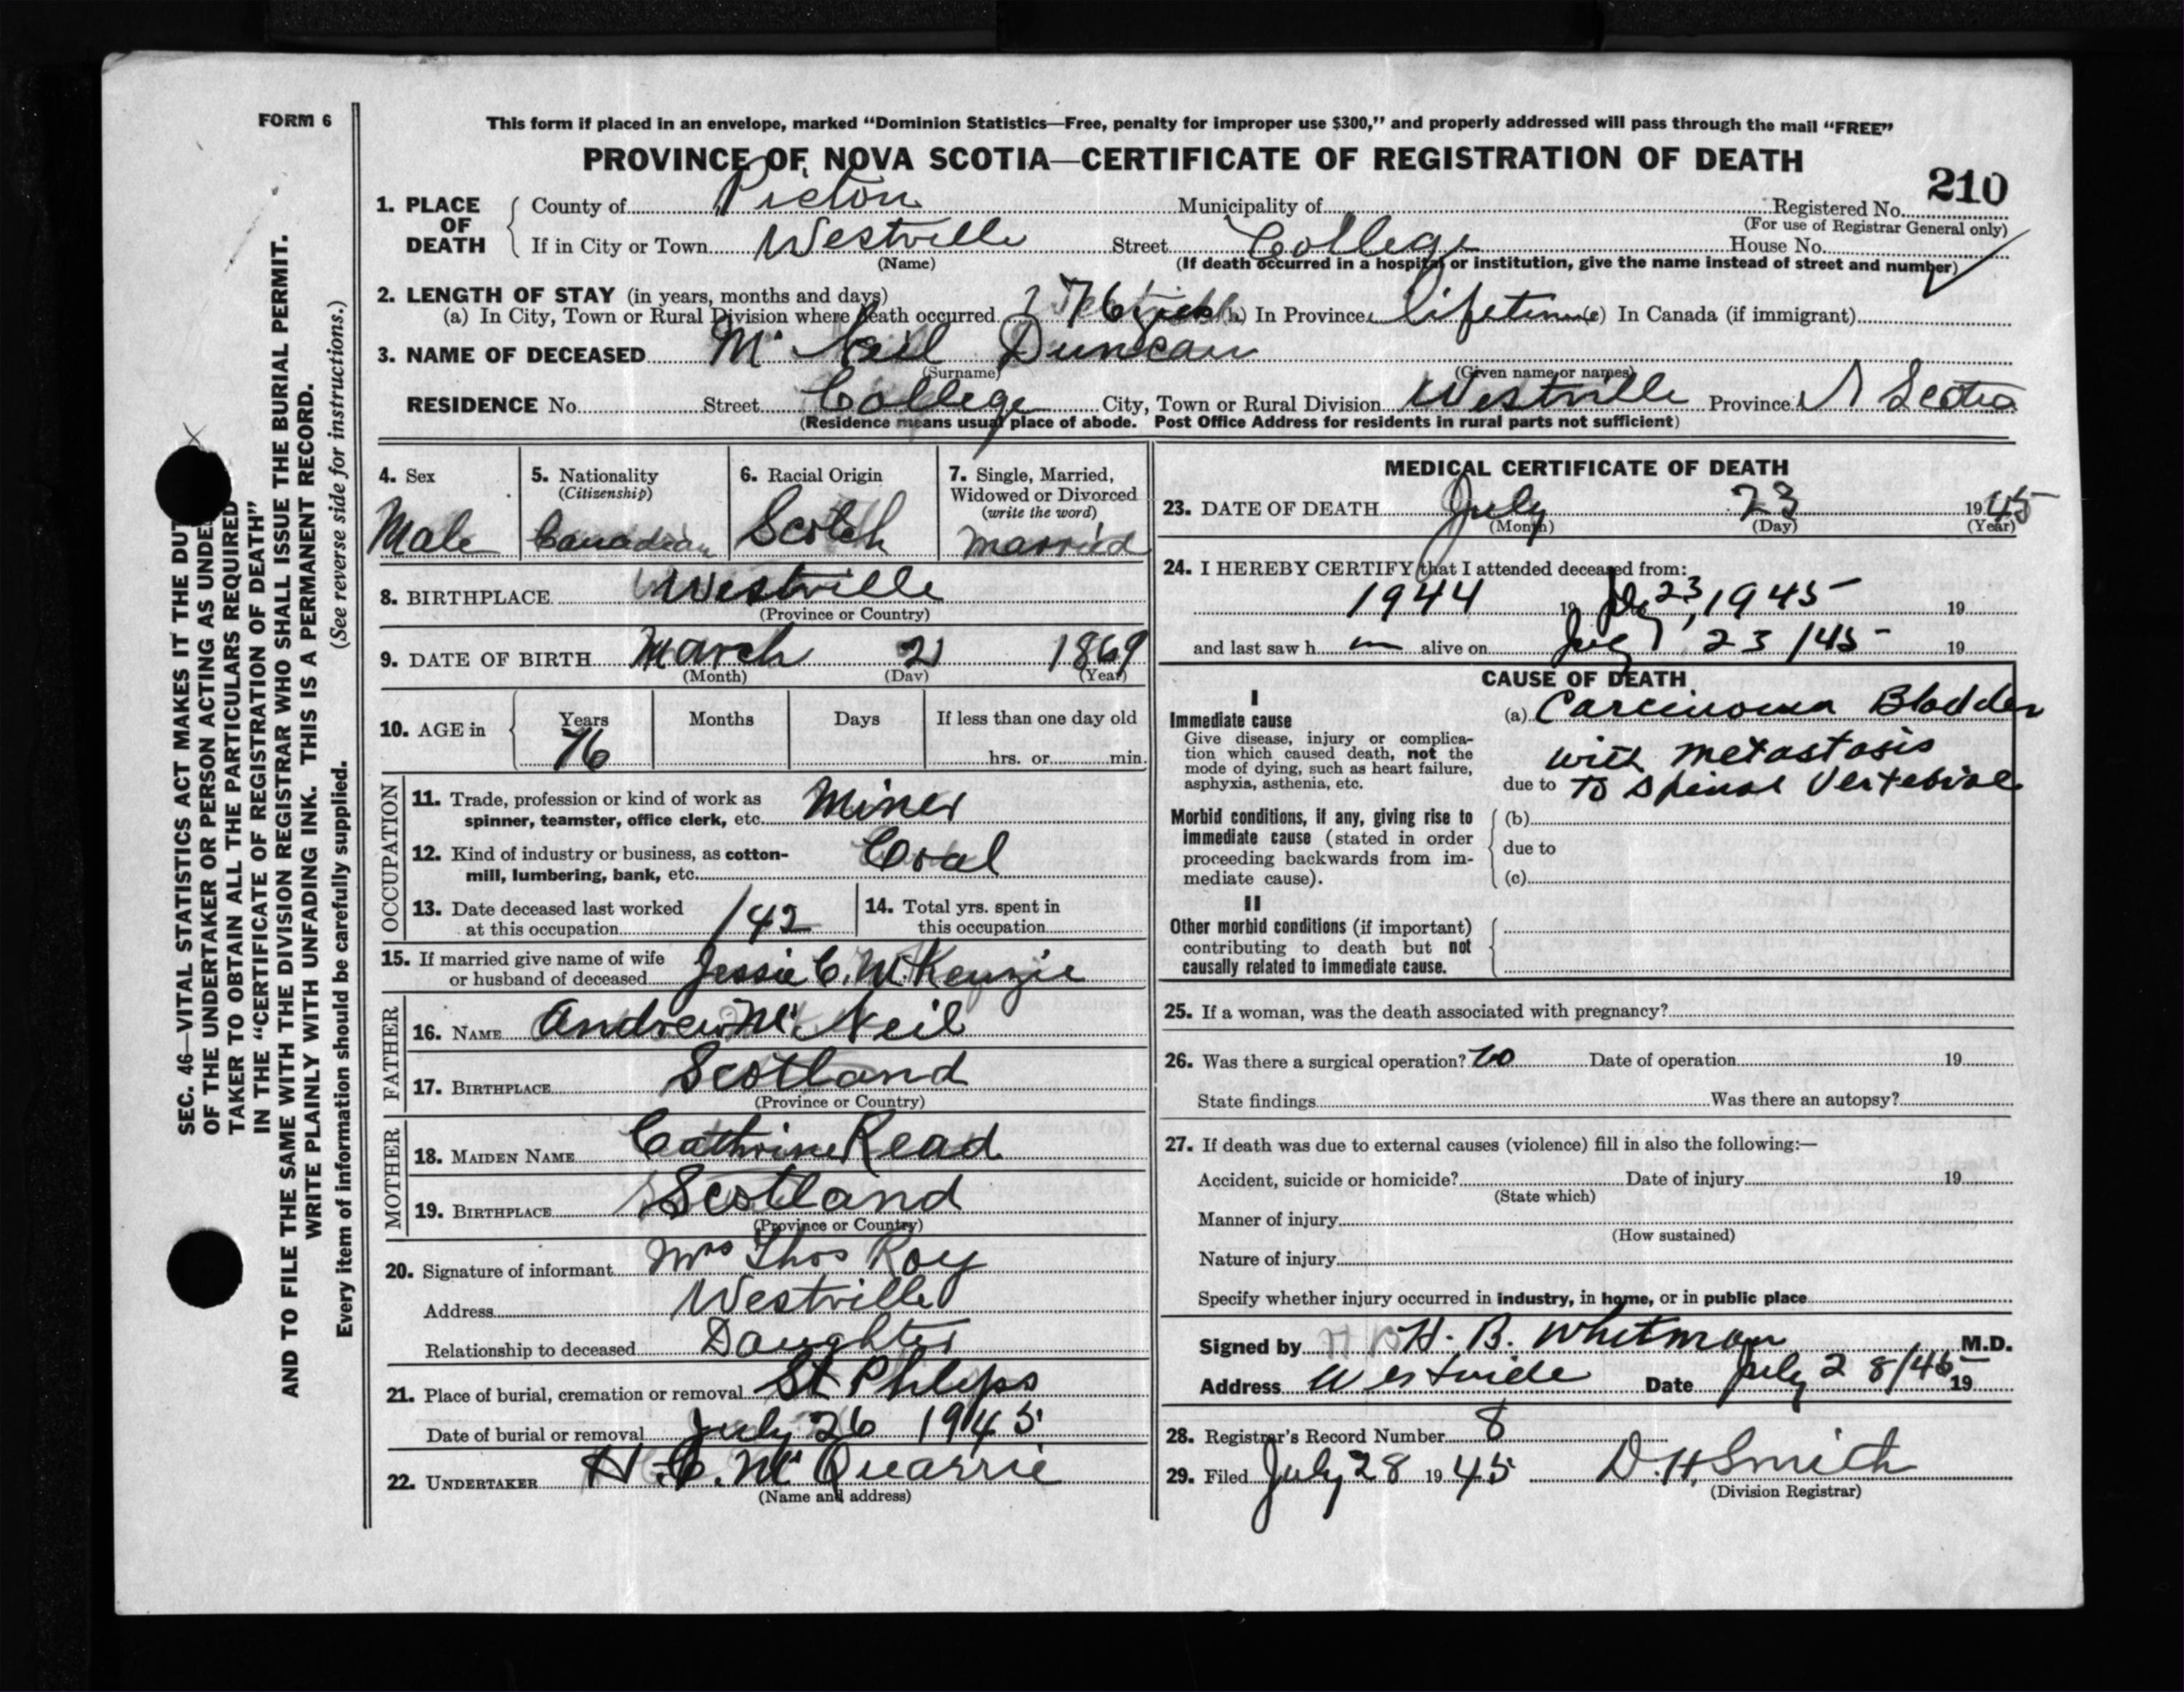 FORM 6
SEC. 46—VITAL STATISTICS ACT MAKES IT THE DUT
OF THE UNDERTAKER OR PERSON ACTING AS UNDE
TAKER TO OBTAIN ALL THE PARTICULARS REQUIRED
IN THE "CERTIFICATE OF REGISTRATION OF DEATH"
AND TO FILE THE SAME WITH THE DIVISION REGISTRAR WHO SHALL ISSUE THE BURIAL PERMIT.
WRITE PLAINLY WITH UNFADING INK. THIS IS A PERMANENT RECORD.
Every item of information should be carefully supplied. (See reverse side for instructions.)
This form if placed in an envelope, marked "Dominion Statistics—Free, penalty for improper use $300," and properly addressed will pass through the mail "FREE"
PROVINCE OF NOVA SCOTIA—CERTIFICATE OF REGISTRATION OF DEATH
210
1. PLACE OF DEATH County of Pictou Municipality of Registered No.
(For use of Registrar General only)
If in City or Town Westville Street College House No.
(Name) (If death occurred in a hospital or institution, give the name instead of street and number)
2. LENGTH OF STAY (in years, months and days)
(a) In City, Town or Rural Division where death occurred 76 (b) In Province lifetime (c) In Canada (if immigrant)
3. NAME OF DECEASED Mc Neil Duncan
(Surname) (Given name or names)
RESIDENCE No. Street College City, Town or Rural Division Westville Province N Scotia
(Residence means usual place of abode. Post Office Address for residents in rural parts not sufficient)
4. Sex Male
5. Nationality (Citizenship) Canadian
6. Racial Origin Scotch
7. Single, Married, Widowed or Divorced (write the word) married
8. BIRTHPLACE Westville
(Province or Country)
9. DATE OF BIRTH March 21 1869
(Month) (Day) (Year)
10. AGE in Years 76 Months Days If less than one day old
hrs. or min.
OCCUPATION
11. Trade, profession or kind of work as
spinner, teamster, office clerk, etc. Miner
12. Kind of industry or business, as cotton-
mill, lumbering, bank, etc. Coal
13. Date deceased last worked
at this occupation /42
14. Total yrs. spent in
this occupation
15. If married give name of wife
or husband of deceased Jessie C. McKenzie
FATHER
16. NAME Andrew Mc Neil
17. BIRTHPLACE Scotland
(Province or Country)
MOTHER
18. MAIDEN NAME Cathrine Read
19. BIRTHPLACE Scotland
(Province or Country)
20. Signature of informant Mrs Thos Roy
Address Westville
Relationship to deceased Daughter
21. Place of burial, cremation or removal St Phlips
Date of burial or removal July 26 1945
22. UNDERTAKER H. C. Mc Quarrie
(Name and address)
MEDICAL CERTIFICATE OF DEATH
23. DATE OF DEATH July 23 1945
(Month) (Day) (Year)
24. I HEREBY CERTIFY that I attended deceased from:
1944 19 July 23, 1945 19
and last saw h m alive on July 23/45 19
CAUSE OF DEATH
I
Immediate cause
Give disease, injury or complica-
tion which caused death, not the
mode of dying, such as heart failure,
asphyxia, asthenia, etc.
(a) Carcinoma Bladder
with metastasis
due to To spinal Vertebrae
Morbid conditions, if any, giving rise to
immediate cause (stated in order
proceeding backwards from im-
mediate cause).
(b)
due to
(c)
II
Other morbid conditions (if important)
contributing to death but not
causally related to immediate cause.
25. If a woman, was the death associated with pregnancy?
26. Was there a surgical operation? no Date of operation 19
State findings Was there an autopsy?
27. If death was due to external causes (violence) fill in also the following:—
Accident, suicide or homicide? Date of injury 19
(State which)
Manner of injury
(How sustained)
Nature of injury
Specify whether injury occurred in industry, in home, or in public place
Signed by H. B. Whitman M.D.
Address Westville Date July 28/45 19
28. Registrar's Record Number 8
29. Filed July 28 1945 D. H. Smith
(Division Registrar)